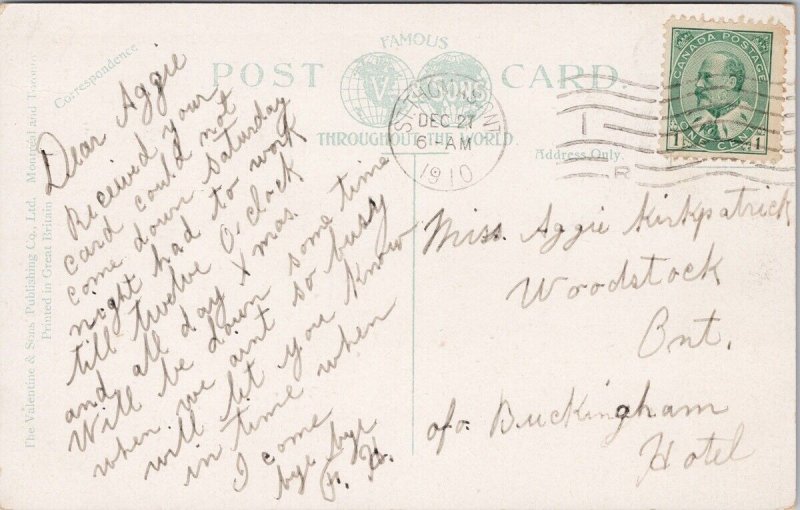 FAMOUS
POST CARD.
V & SONS
THROUGHOUT THE WORLD.
Correspondence
Address Only.
The Valentine & Sons Publishing Co., Ltd. Montreal and Toronto
Printed in Great Britain
CANADA POSTAGE
ONE CENT
1 1
ONT
DEC 27
6-AM
1910
R
Dear Aggie
Received your
card could not
come down Saturday
night had to work
till twelve O'clock
and all day Xmas.
Will be down some time
when we aint so busy
will let you know
in time when
I come
bye bye
Miss. Aggie Kirkpatrick
Woodstock
Ont.
c/o Buckingham
Hotel